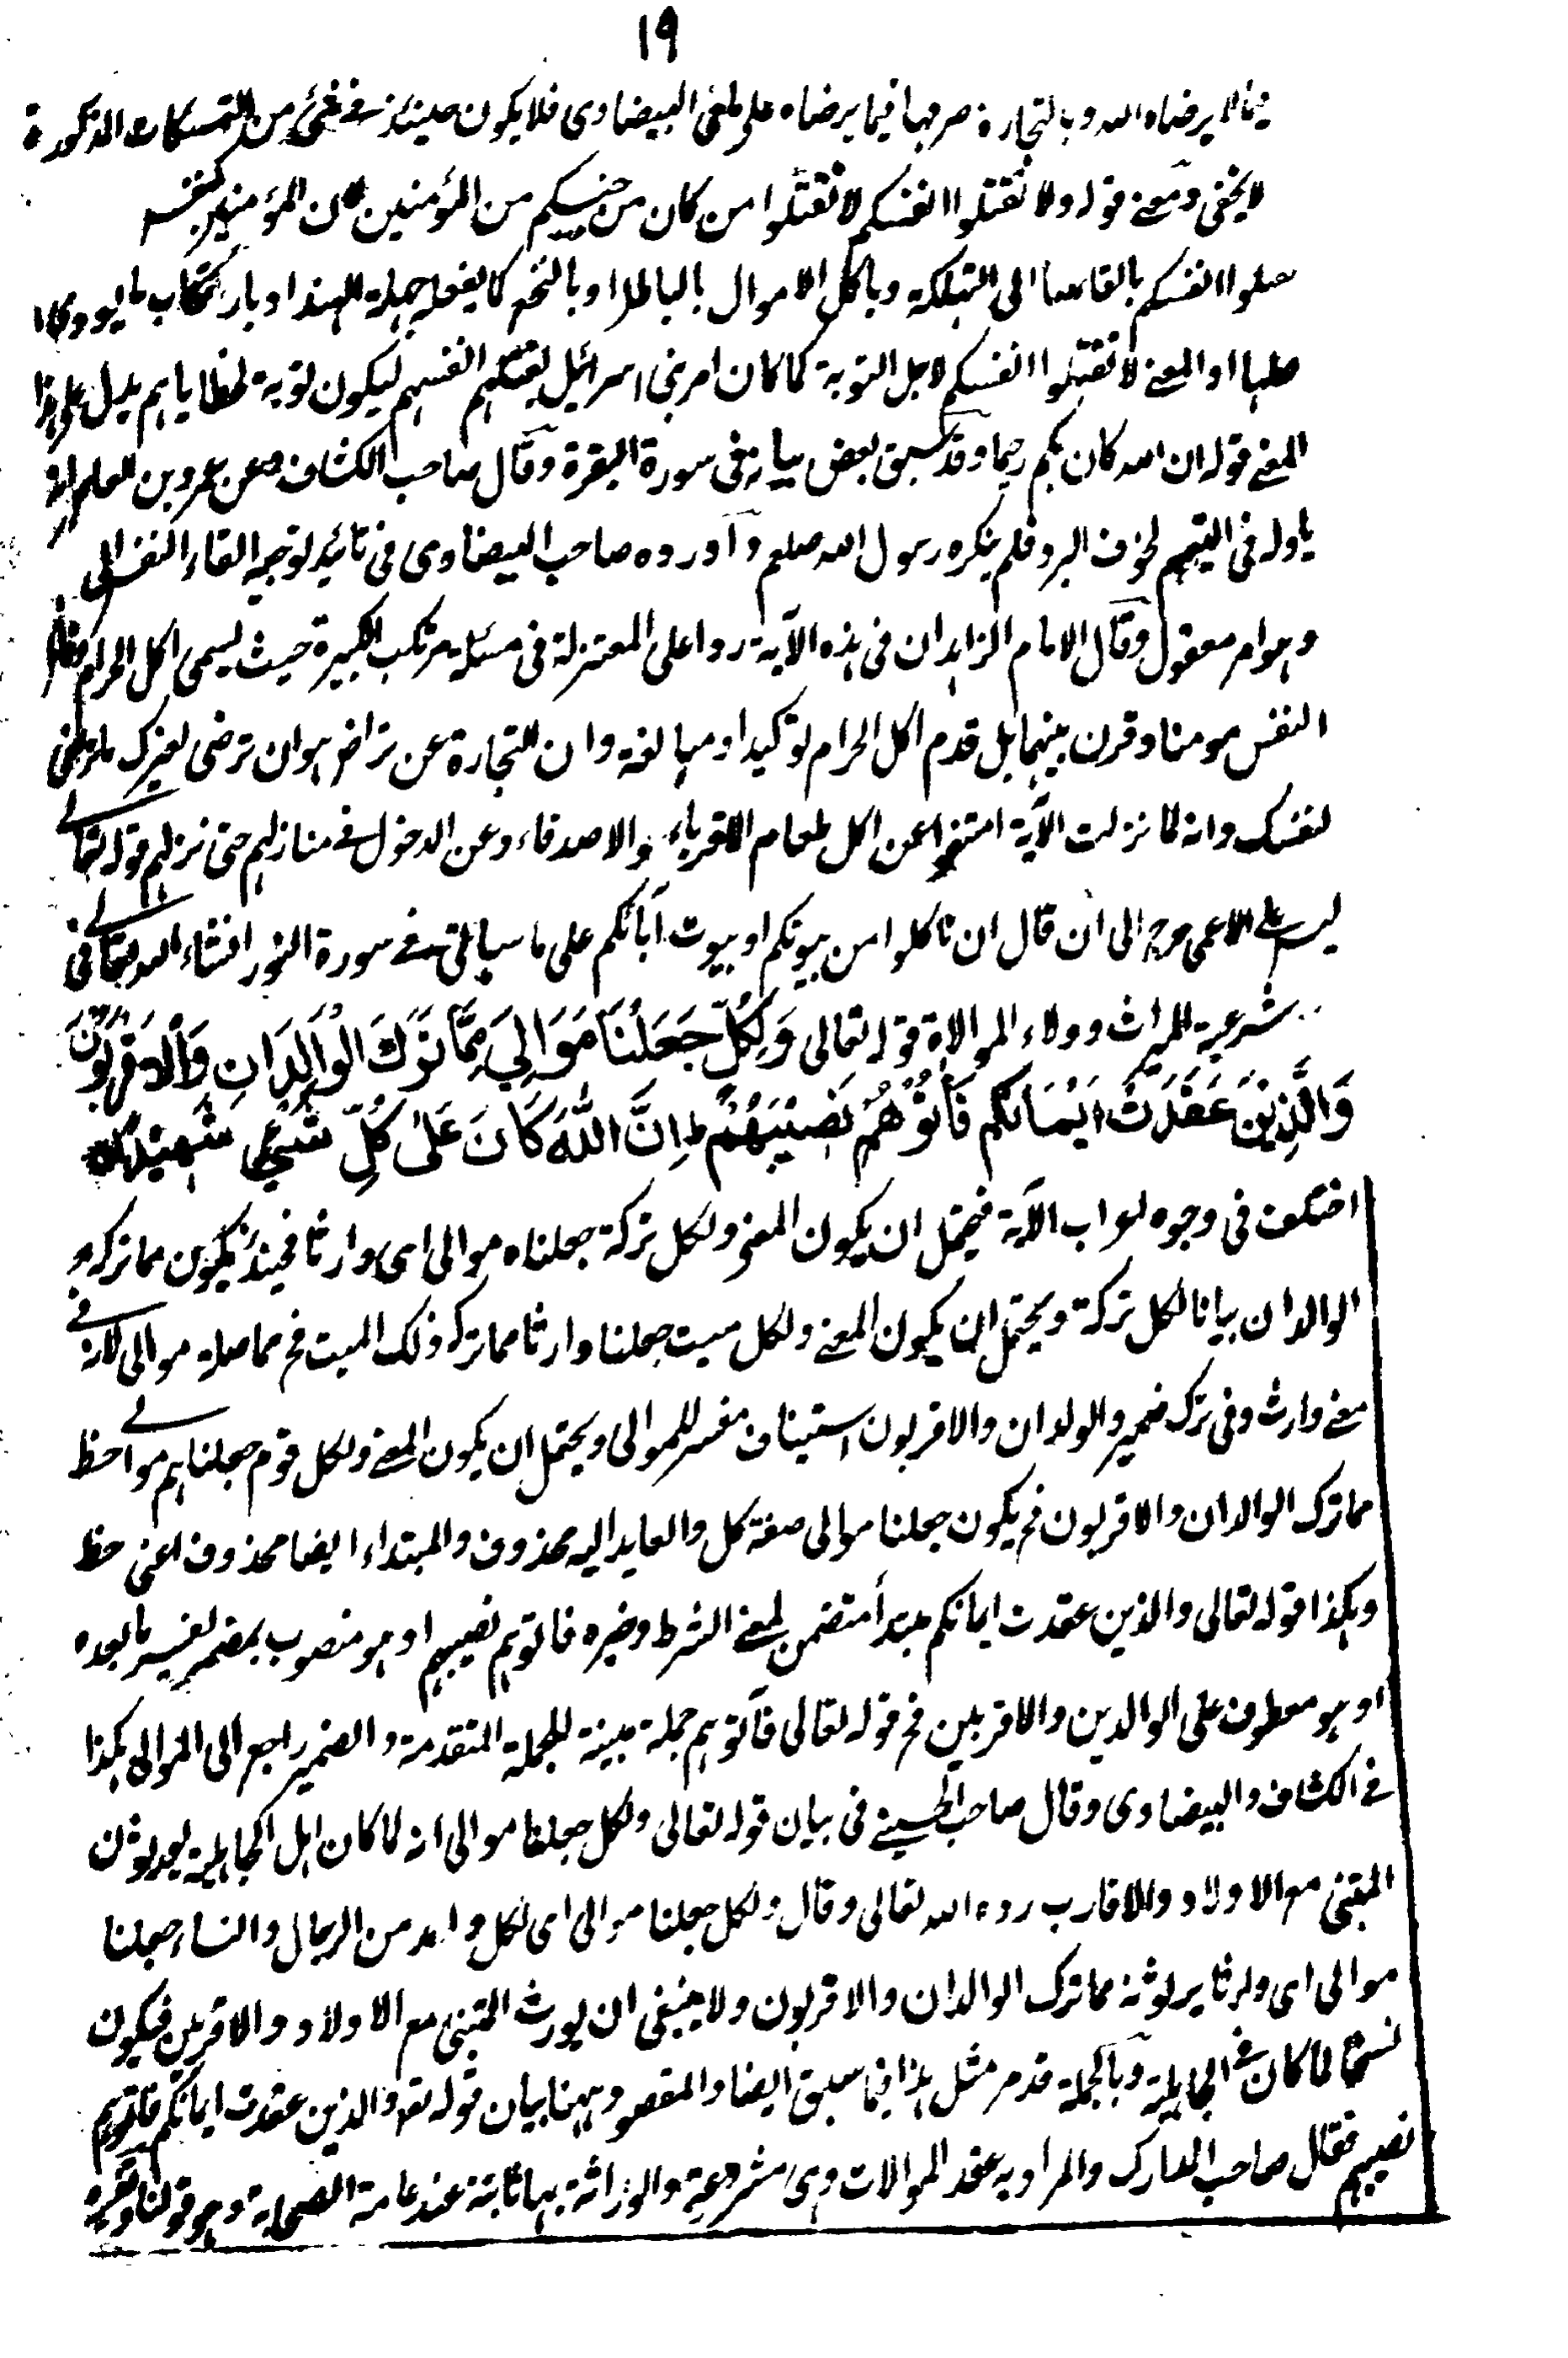 ١٩
فيما لا يرضاه الله وبالتجارة صرفها فيما يرضاه على ما فى البيضاوى فلا يكون حينئذ فى شئ من التمسكات المذكورة
لا يخفى ومعنى قوله ولا تقتلوا انفسكم لا تقتلوا من كان من جنسكم من المؤمنين لان المؤمنين كنفس
انفسكم بالقائها الى التهلكة وباكل الاموال بالباطل او بالنخع كما يفعله جهلة الهند او بارتكاب ما يودى
او المعنى لا تقتلوا انفسكم لاجل التوبة كما كان امر بنى اسرائيل بقتلهم انفسهم ليكون توبة لخطاياهم يدل على هذا
المعنى قوله ان الله كان بكم رحيما وقد سبق بعض بيانه فى سورة البقرة وقال صاحب الكشاف وعن عمرو بن العاص انه
ياوله فى التيمم لخوف البرد فلم ينكره رسول الله صلعم واورده صاحب البيضاوى فى تائيد توجيه القاء النفس الى
وهو امر معقول وقال الامام الزاهد ان فى هذه الآية ردا على المعتزلة فى مسئلة مرتكب الكبيرة حيث يسمى اكل الحرام
النفس مومنا وقرن بينهما بل قدم اكل الحرام توكيدا ومبالغة وان التجارة عن تراض هو ان ترضى لغيرك ما ترضى
لنفسك وانه لما نزلت الآية امتنعوا عن اكل طعام الاقرباء والاصدقاء وعن الدخول فى منازلهم حتى نزل قوله تعالى
ليس على الاعمى حرج الى ان قال ان تاكلوا من بيوتكم او بيوت آبائكم على ما سياتى فى سورة النور انشاء الله تعالى فى
شرعية الميراث وولاء الموالاة قوله تعالى وَلِكُلٍّ جَعَلْنَا مَوَالِيَ مِمَّا تَرَكَ الْوَالِدَانِ وَالْاَقْرَبُوْنَ
وَالَّذِيْنَ عَقَدَتْ اَيْمَانُكُم فَاٰتُوْهُمْ نَصِيْبَهُمْ ط اِنَّ اللّٰهَ كَانَ عَلٰى كُلِّ شَيْءٍ شَهِيْدًا
اختلف فى وجوه اعراب الآية فيحتمل ان يكون المعنى ولكل تركة جعلناه موالى اى وارثا فحينئذ يكون مما تركه
الوالدان بيانا لكل تركة ويحتمل ان يكون المعنى ولكل ميت جعلنا وارثا مما تركه ذلك الميت فح مما صلة موالى لانه فى
معنى وارث وفى ترك ضمير والولدان والاقربون استيناف مفسر للموالى ويحتمل ان يكون المعنى ولكل قوم جعلناهم موالى حظ
مما ترك الوالدان والاقربون فح يكون جعلنا موالى صفة كل والعايد اليه محذوف والمبتداء ايضا محذوف اعنى حظ
وهكذا قوله تعالى والذين عقدت ايمانكم مبتدأ متضمن لمعنى الشرط وخبره فاتوهم نصيبهم او هو منصوب بمضمر يفسره ما بعده
او هو معطوف على الوالدين والاقربين فح قوله تعالى فآتوهم جملة مبينة للجملة المتقدمة والضمير راجع الى الموالى هكذا
فى الكشاف والبيضاوى وقال صاحب الحسينى فى بيان قوله تعالى ولكل جعلنا موالى انه لما كان اهل الجاهلية يورثون
المتبنى مع الاولاد والاقارب رده الله تعالى وقال ولكل جعلنا موالى اى لكل واحد من الرجال والنساء جعلنا
موالى اى ورثا يرثونه مما ترك الوالدان والاقربون ولا ينبغى ان يورث المتبنى مع الاولاد والاقربين فيكون
نسخا لما كان فى الجاهلية وبالجملة قد مر مثل هذا فيما سبق ايضا والمقصود ههنا بيان قوله تعه والذين عقدت ايمانكم فاتوهم
نصيبهم فقال صاحب المدارك والمراد به عقد الموالات وهى مشروعة والوراثة بها ثابتة عند عامة الصحابة وهو قولنا